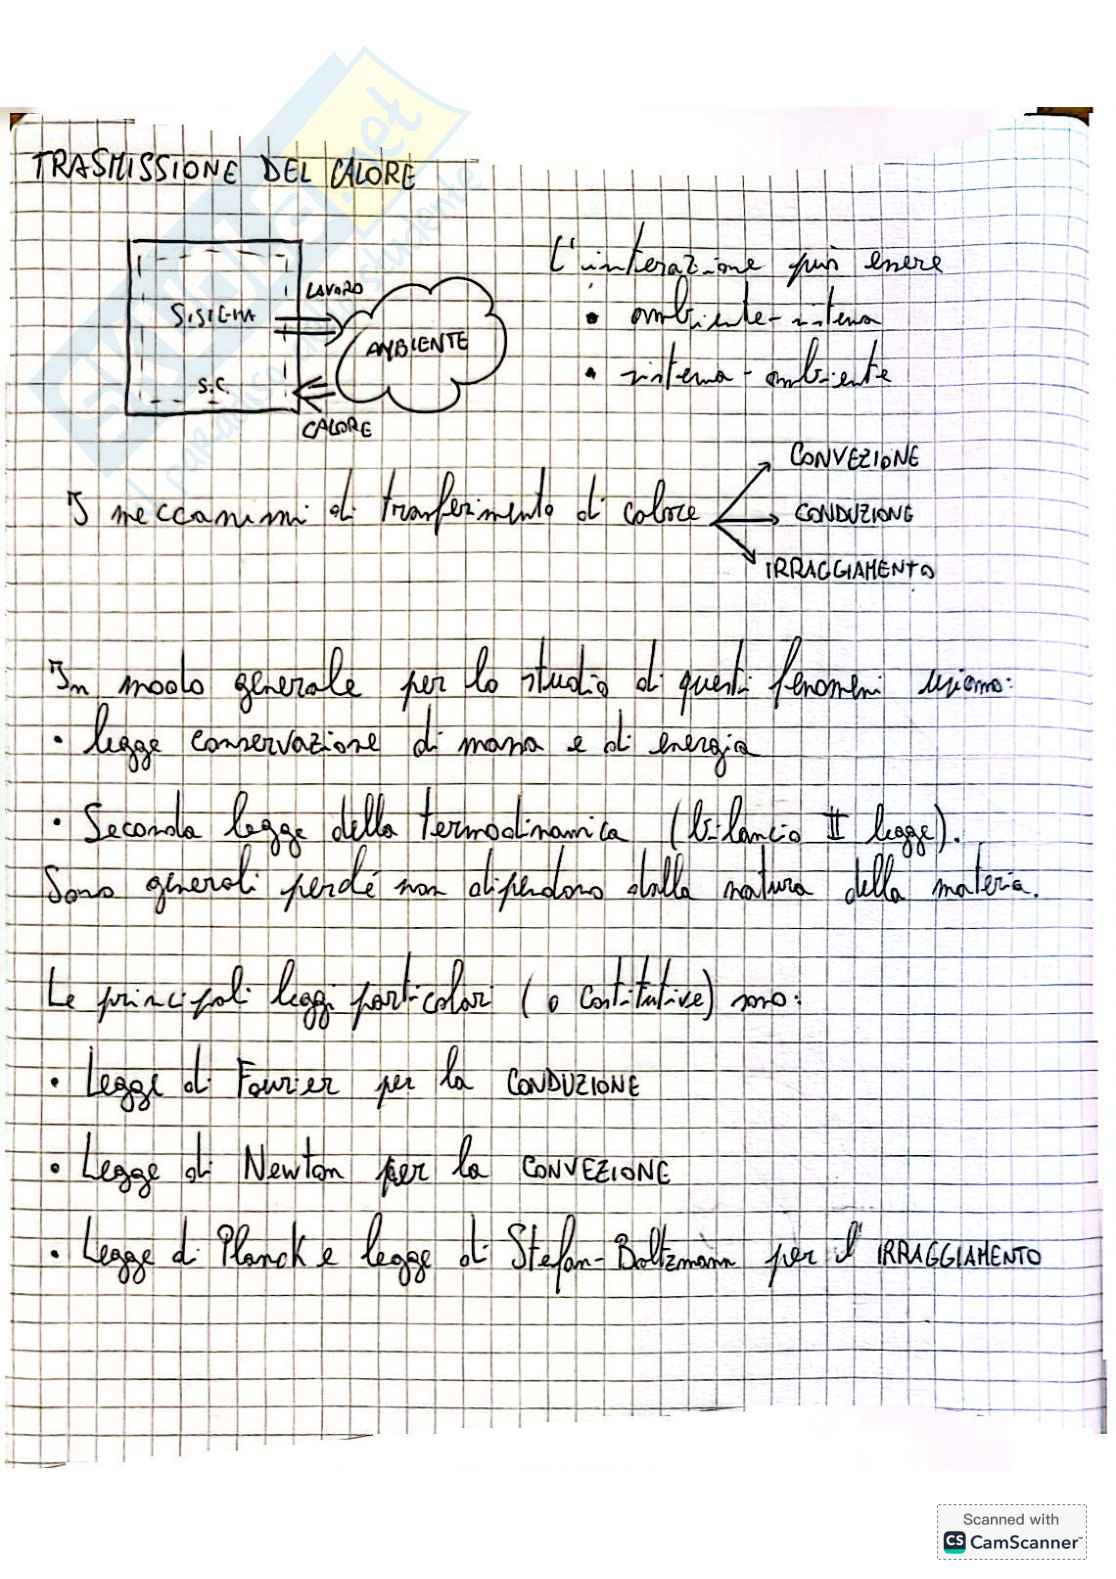 TRASMISSIONE DEL CALORE
SISTEMA
S.C.
LAVORO
AMBIENTE
CALORE
L'interazione può essere
• ambiente-sistema
• sistema-ambiente
I meccanismi di trasferimento di calore
CONVEZIONE
CONDUZIONE
IRRAGGIAMENTO
In modo generale per lo studio di questi fenomeni usiamo:
• legge conservazione di massa e di energia
• Seconda legge della termodinamica (bilancio II legge).
Sono generali perché non dipendono dalla natura della materia.
Le principali leggi particolari (o costitutive) sono:
• Legge di Fourier per la CONDUZIONE
• Legge di Newton per la CONVEZIONE
• Legge di Planck e legge di Stefan-Boltzmann per l'IRRAGGIAMENTO
Scanned with
CS CamScanner